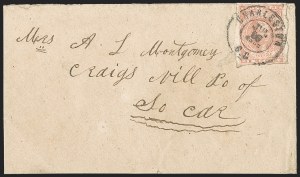 Mrs A L Montgomey
Craigs Vill Po of
So Car
CHARLESTON